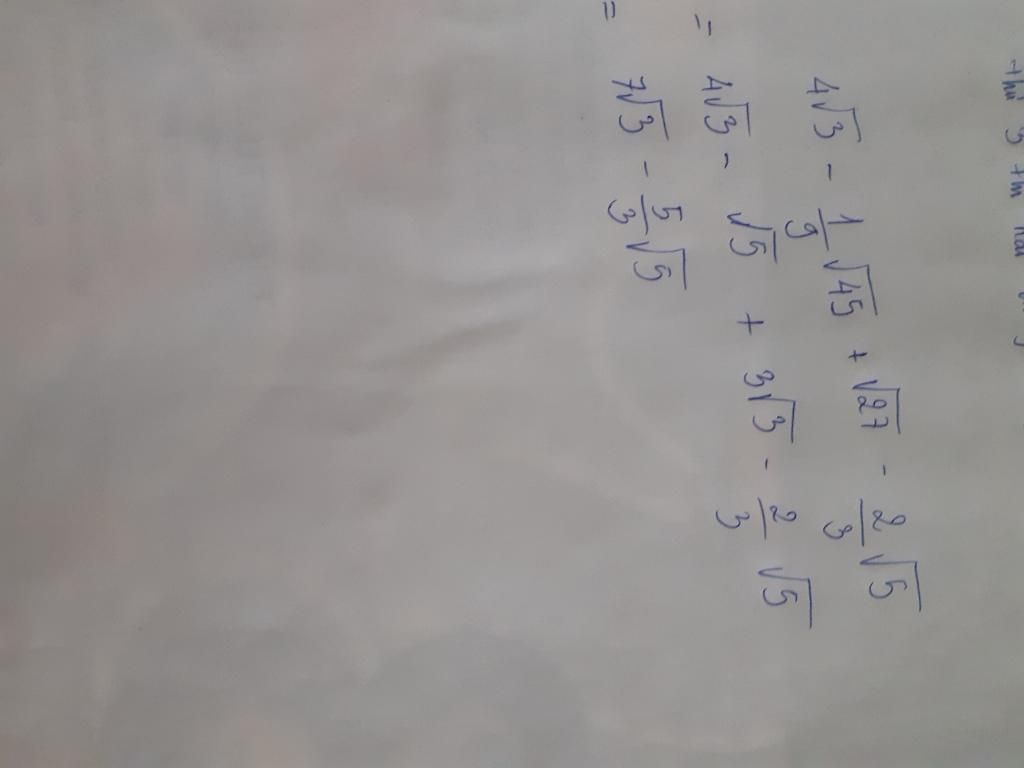 4√3 - 1/9 √45 + √27 - 2/3 √5
= 4√3 - √5 + 3√3 - 2/3 √5
= 7√3 - 5/3 √5